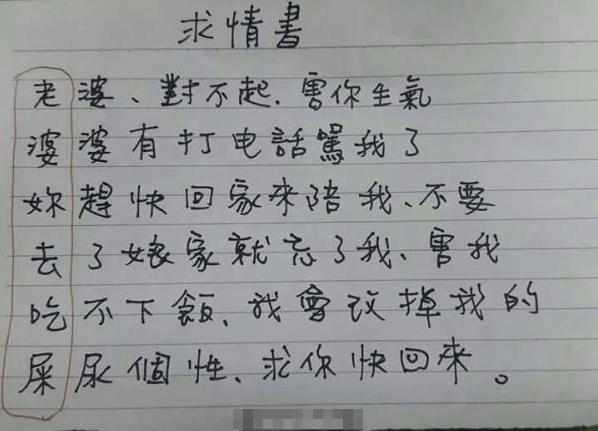 求情書
老婆、對不起.害你生氣
婆婆有打电話罵我了
妳趕快回家來陪我、不要
去了娘家就忘了我、害我
吃不下飯、我會改掉我的
屎尿個性、求你快回來。